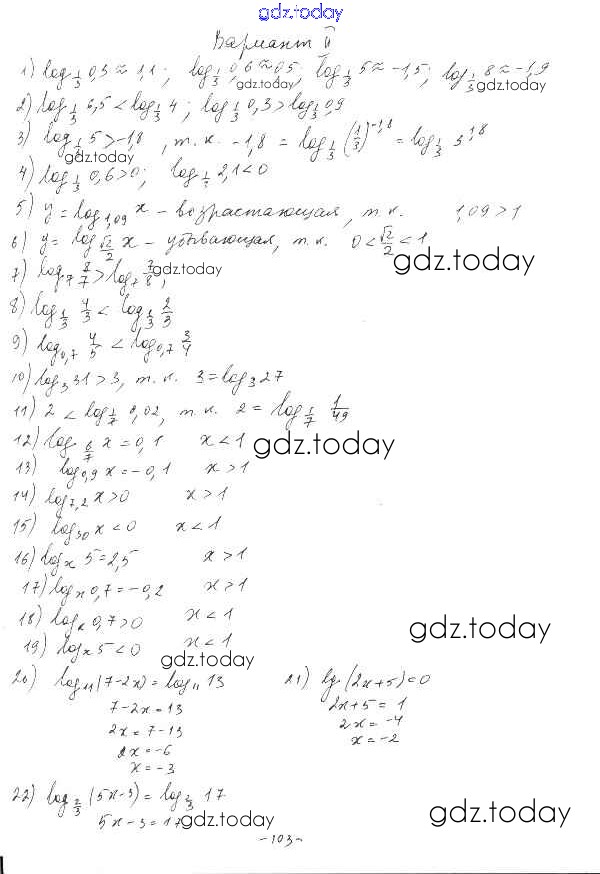 gdz.today
Вариант II
1) log_{1/3} 0,3 ≈ 1,1; log_{1/3} 0,6 ≈ 0,5; log_{1/3} 5 ≈ -1,5; log_{1/3} 8 ≈ -1,9
gdz.today gdz.today
2) log_{1/3} 6,5 < log_{1/3} 4; log_{1/3} 0,3 > log_{1/3} 0,9
3) log_{1/3} 5 > -1,8, т.к. -1,8 = log_{1/3} (1/3)^{-1,8} = log_{1/3} 3^{1,8}
gdz.today
4) log_{1/3} 0,6 > 0; log_{1/3} 2,1 < 0
5) y = log_{1,09} x - возрастающая, т.к. 1,09 > 1
6) y = log_{√2/2} x - убывающая, т.к. 0 < √2/2 < 1
gdz.today
7) log_7 8/7 > log_7 7/8;
gdz.today
8) log_{1/3} 4/3 < log_{1/3} 2/3
9) log_{0,7} 4/5 < log_{0,7} 3/4
10) log_3 31 > 3, т.к. 3 = log_3 27
11) 2 < log_{1/7} 0,02, т.к. 2 = log_{1/7} 1/49
12) log_{6/7} x = 0,1 x < 1
gdz.today
13) log_{0,9} x = -0,1 x > 1
14) log_{7,2} x > 0 x > 1
15) log_{30} x < 0 x < 1
16) log_x 5 = 2,5 x > 1
17) log_x 0,7 = -0,2 x > 1
18) log_x 0,7 > 0 x < 1
gdz.today
19) log_x 5 < 0 x < 1
gdz.today
20) log_{11} (7-2x) = log_{11} 13
7-2x = 13
2x = 7-13
2x = -6
x = -3
21) lg (2x+5) = 0
2x+5 = 1
2x = -4
x = -2
22) log_{2/3} (5x-3) = log_{2/3} 17
5x-3 = 17
gdz.today
gdz.today
-103-